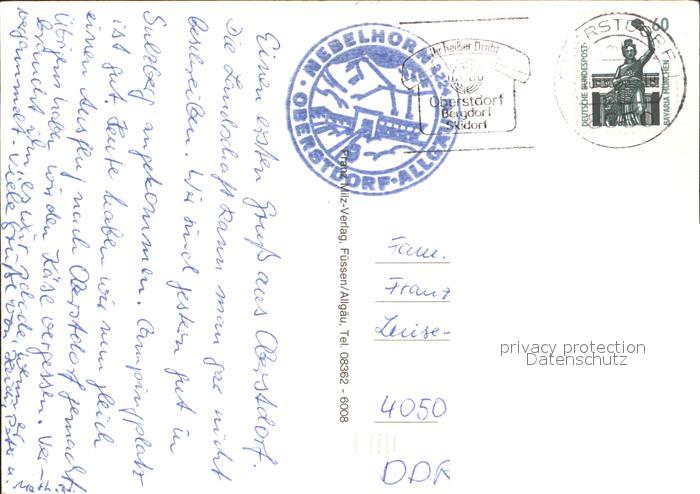 Einen ersten Gruß aus Oberstdorf.
Die Landschaft kann man gar nicht
beschreiben. Wir sind gestern gut in
Sulzberg angekommen. Campingplatz
ist gut. Heute haben wir nun gleich
einen Ausflug nach Oberstdorf gemacht
Übrigens haben wir den Käse vergessen.
Viele Grüße von
NEBELHORN 2224
OBERSTDORF-ALLGÄU
Ihr heißer Draht
Oberstdorf
Bergdorf
Skidorf
OBERSTDORF
60
DEUTSCHE BUNDESPOST
BAVARIA MÜNCHEN
Franz Milz-Verlag, Füssen/Allgäu, Tel. 08362 - 6008
Fam.
Franz
Luise-
privacy protection
Datenschutz
4050
DDR